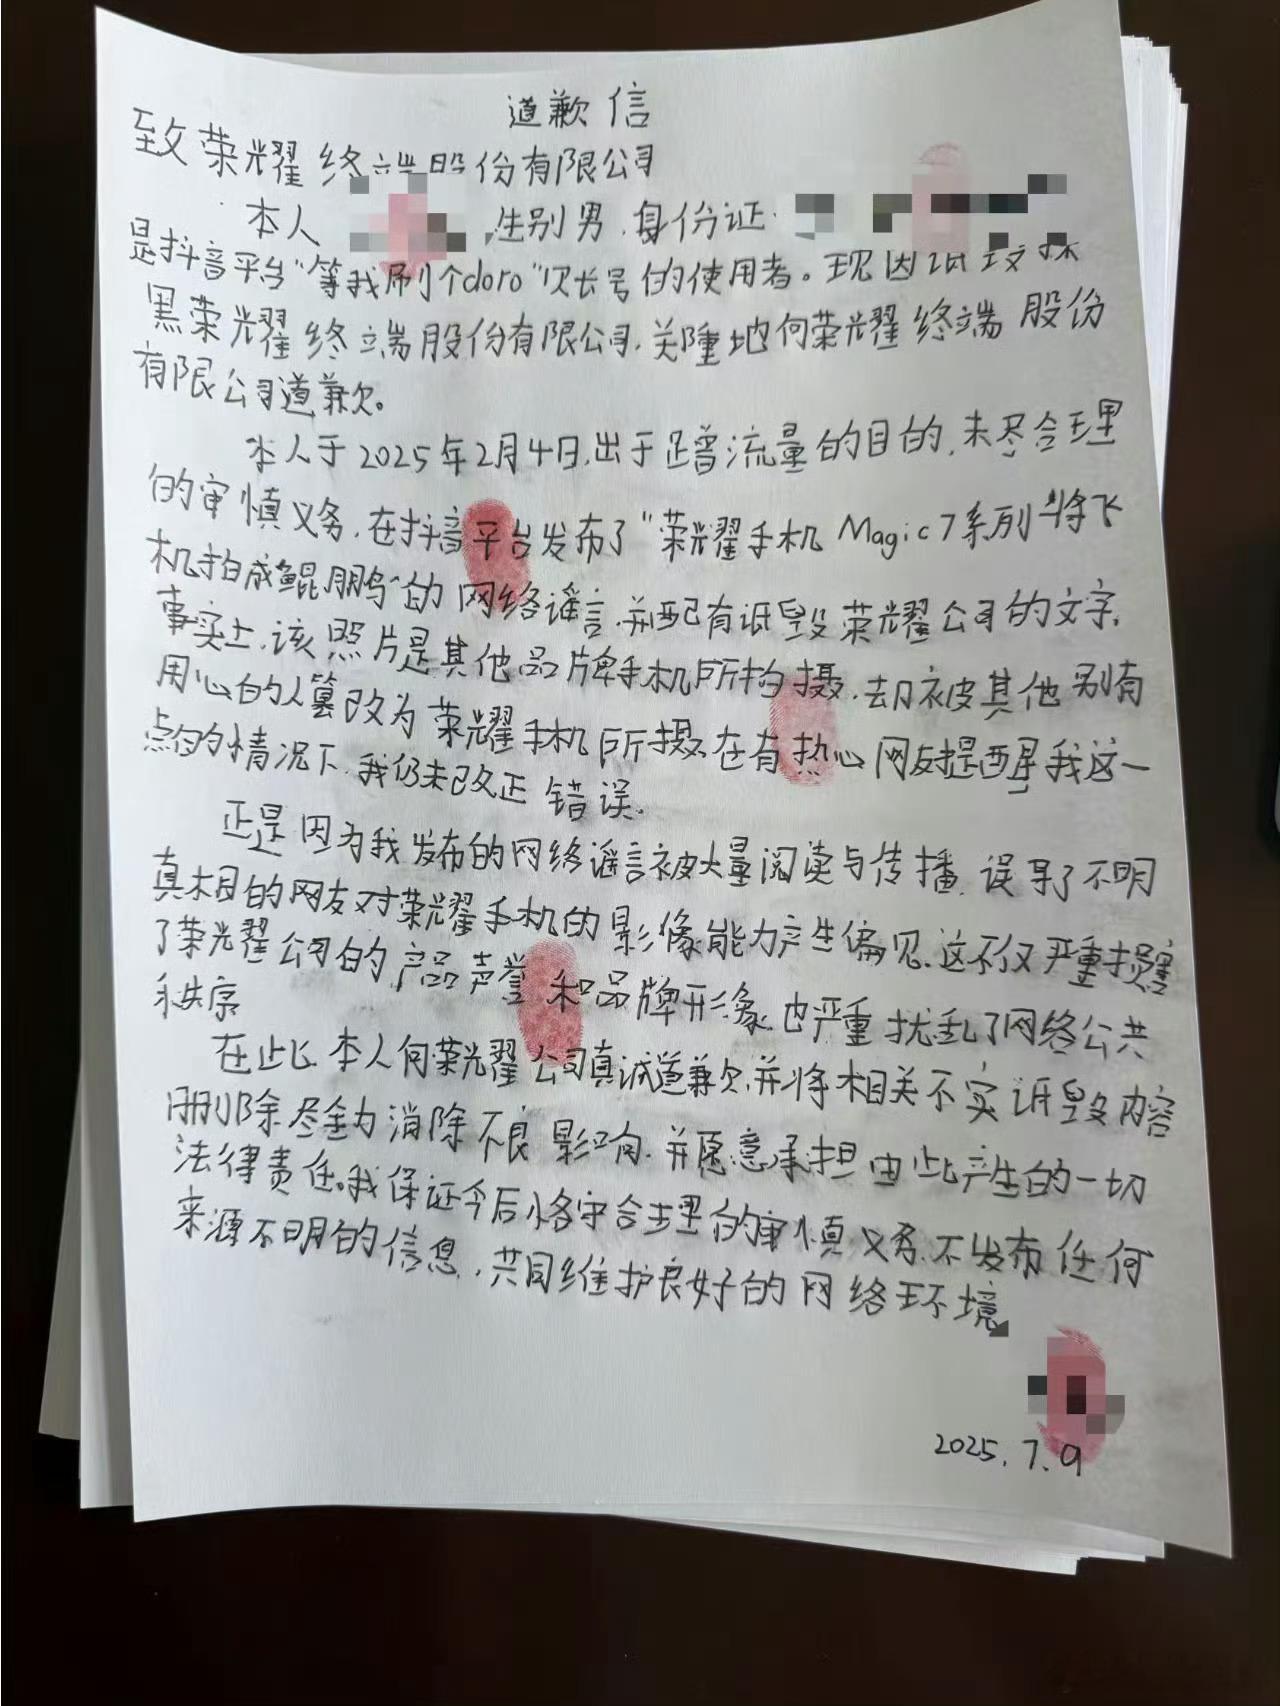 道歉信
致荣耀终端股份有限公司
本人 ,性别男,身份证:
是抖音平台"等我刷个doro"账号的使用者。现因诋毁抹
黑荣耀终端股份有限公司,郑重地向荣耀终端股份
有限公司道歉。
本人于2025年2月4日,出于蹭流量的目的,未尽合理
的审慎义务,在抖音平台发布了"荣耀手机Magic7系列"将飞
机拍成鲲鹏"的网络谣言,并配有诋毁荣耀公司的文字,
事实上,该照片是其他品牌手机所拍摄,却被其他别有
用心的人篡改为荣耀手机所摄,在有热心网友提醒我这一
点的情况下,我仍未改正错误.
正是因为我发布的网络谣言被大量阅读与传播,误导了不明
真相的网友对荣耀手机的影像能力产生偏见,这不仅严重损害
了荣耀公司的产品声誉和品牌形象,也严重扰乱了网络公共
秩序
在此,本人向荣耀公司真诚道歉,并将相关不实诋毁内容
删除,尽全力消除不良影响,并愿意承担由此产生的一切
法律责任。我保证今后恪守合理的审慎义务,不发布任何
来源不明的信息,共同维护良好的网络环境
2025.7.9